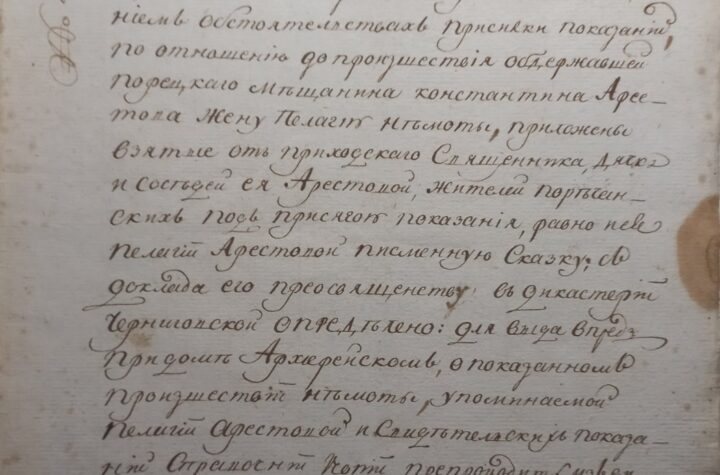 ніемъ обстоятельствахъ присяки показаній,
по отношенію до произшествія одержавшей
Порецкаго мѣщанина константина Арес–
това жену Пелагію нѣмоты, приложены
взятые отъ приходскаго Священника, дячка
и сосѣдей ея Арестовой, жителей Порѣчан–
скихъ подъ присягою показанія, равно и ея
Пелагіи Арестовой писменную Сказку; С
доклада его преосвященству въ дикастеріи
Черниговской Опредѣлено: для вѣда впредъ
при домѣ Архіерейскомъ, о показанномъ
произшествіи нѣмоты, упоминаемой
Пелагіи Арестовой и Свидѣтельскихъ показа–
ній Справочній Копіи препроводить